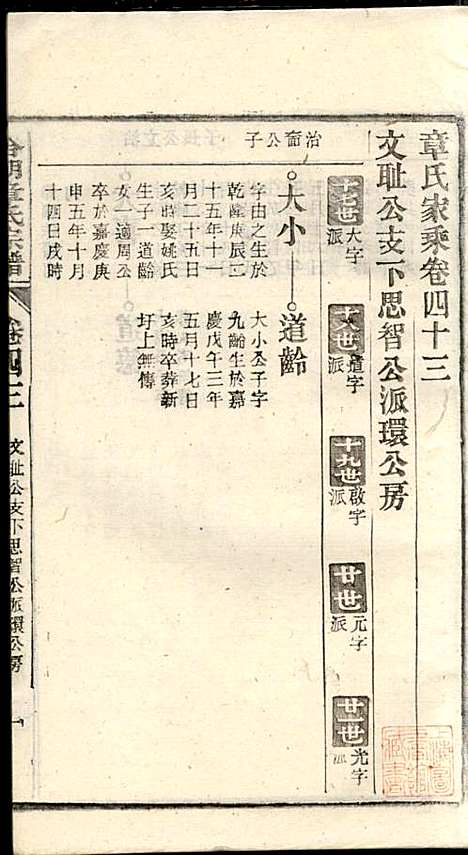 章氏家乘卷四十三
文耻公支下思智公派環公房
十七世大字派
十八世道字派
十九世啟字派
廿世元字派
廿一世光字派
治齋公子
大小——道齡
字由之生於
乾隆庚辰二
十五年十一
月二十五日
亥時娶姚氏
生子一道齡
女一適周公
卒於嘉慶庚
申五年十月
十四日戌時
大小公子字
九齡生於嘉
慶戊午三年
五月十七日
亥時卒葬新
圩上無傳
章氏宗譜
卷四十三
文耻公支下思智公派環公房
一